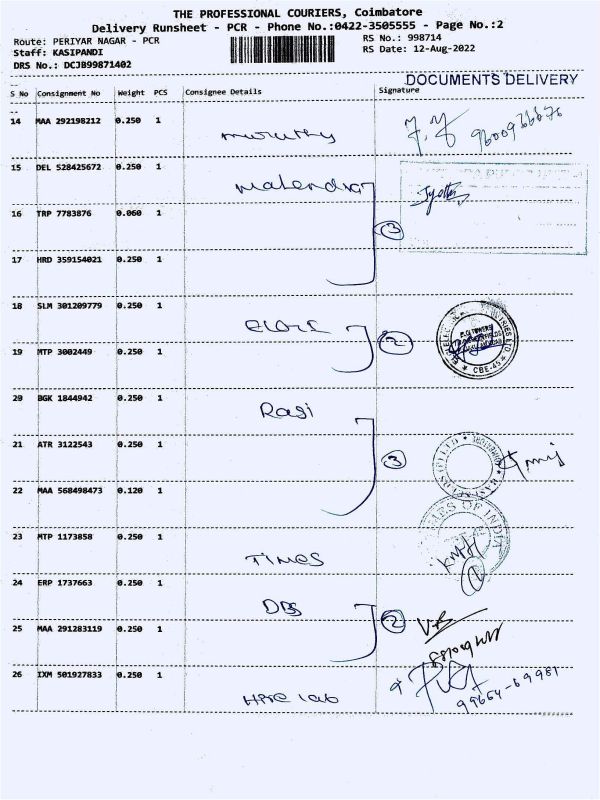 THE PROFESSIONAL COURIERS, Coimbatore
Delivery Runsheet - PCR - Phone No.:0422-3505555 - Page No.:2
Route: PERIYAR NAGAR - PCR RS No.: 998714
Staff: KASIPANDI RS Date: 12-Aug-2022
DRS No.: DCJB99871402
DOCUMENTS DELIVERY
S No Consignment No Weight PCS Consignee Details Signature
14 MAA 292198212 0.250 1
muruthy
15 DEL 528425672 0.250 1
Mahendra
16 TRP 7783876 0.060 1
3
17 HRD 359154021 0.250 1
18 SLM 301209779 0.250 1
ELGI
19 MTP 3002449 0.250 1
2
CBE-45
20 BGK 1844942 0.250 1
Rasi
21 ATR 3122543 0.250 1
3
22 MAA 568498473 0.120 1
OF INDIA
23 MTP 1173858 0.250 1
TIMES
24 ERP 1737663 0.250 1
DBS
2
25 MAA 291283119 0.250 1
26 IXM 501927833 0.250 1
lab
99654-69981